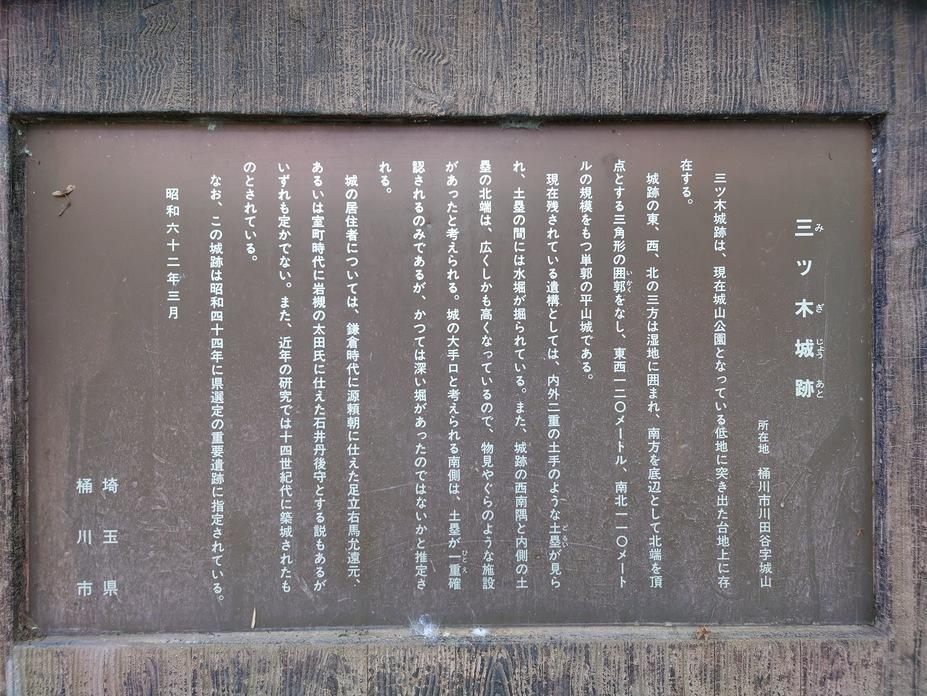 三ツ木城跡
み ぎ じょう あと
所在地 桶川市川田谷字城山
三ツ木城跡は、現在城山公園となっている低地に突き出た台地上に存
在する。
城跡の東、西、北の三方は湿地に囲まれ、南方を底辺として北端を頂
点とする三角形の囲郭をなし、東西一二〇メートル、南北一一〇メート
いかく
ルの規模をもつ単郭の平山城である。
現在残されている遺構としては、内外二重の土手のような土塁が見ら
どるい
れ、土塁の間には水堀が掘られている。また、城跡の西南隅と内側の土
塁の北端は、広くしかも高くなっているので、物見やぐらのような施設
があったと考えられる。城の大手口と考えられる南側は、土塁が一重確
ひとえ
認されるのみであるが、かつては深い堀があったのではないかと推定さ
れる。
城の居住者については、鎌倉時代に源頼朝に仕えた足立右馬允遠元、
あるいは室町時代に岩槻の太田氏に仕えた石井丹後守とする説もあるが
いずれも定かでない。また、近年の研究では十四世紀代に築城されたも
のとされている。
なお、この城跡は昭和四十四年に県選定の重要遺跡に指定されている。
昭和六十二年三月
埼玉県
桶川市